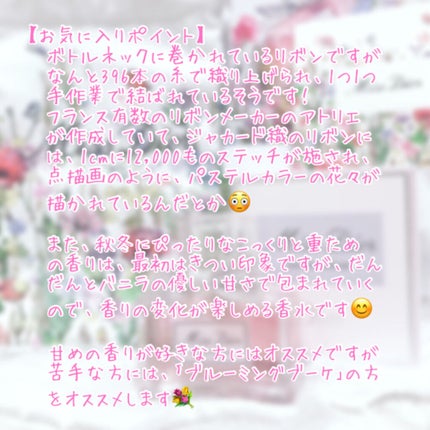 【お気に入りポイント】
ボトルネックに巻かれているリボンですが
なんと396本の糸で織り上げられ、1つ1つ
手作業で結ばれているそうです!
フランス有数のリボンメーカーのアトリエ
が作成していて、ジャカード織のリボンに
は、1cmに12,000ものステッチが施され、
点描画のように、パステルカラーの花々が
描かれているんだとか😳
また、秋冬にぴったりなこっくりと重ため
の香りは、最初はきつい印象ですが、だん
だんとバニラの優しい甘さで包まれていく
ので、香りの変化が楽しめる香水です😊
甘めの香りが好きな方にはオススメですが
苦手な方には、「ブルーミングブーケ」の方
をオススメします💐